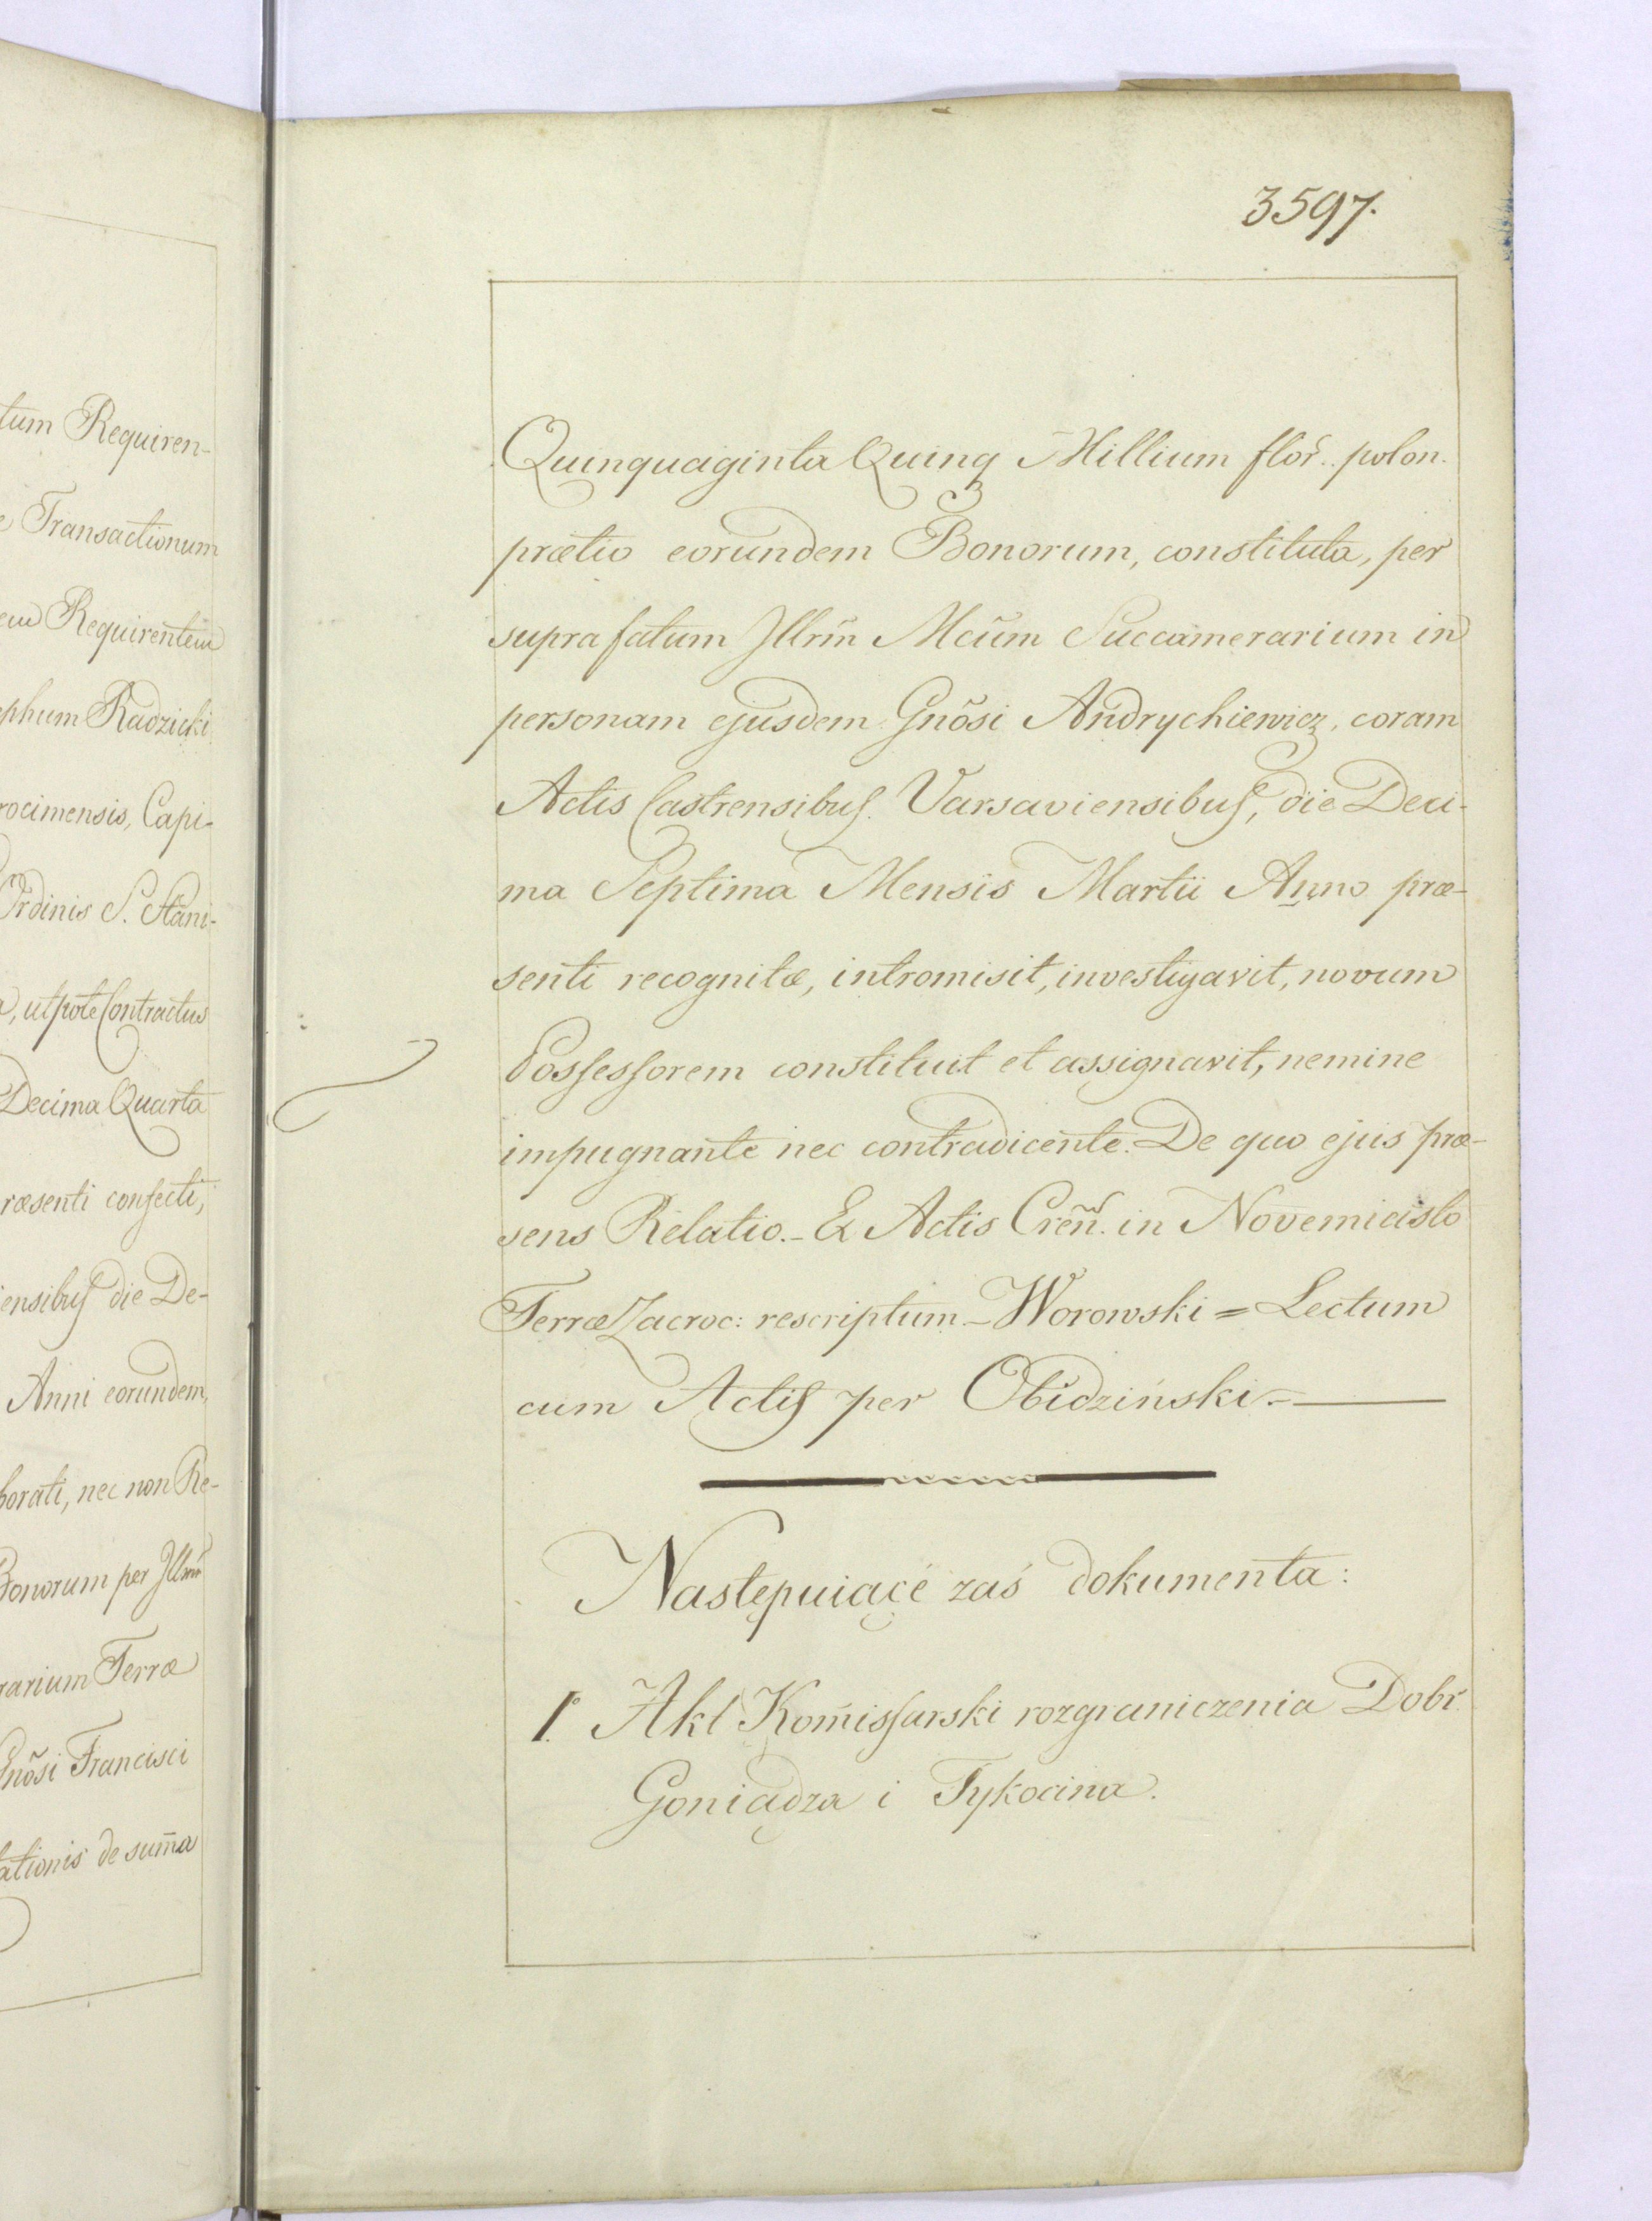 tum Requiren-
Transactionum
Requirentem
phum Radzicki
rocimensis, Capi-
Ordinis S. Stani-
utpote Contractus
Decima Quarta
ræsenti confecti,
ensibus die De-
Anni eorundem,
borati, nec non Re-
Bonorum per Jllrm̃
rarium Terræ
Gnõsi Francisci
ationis de sum̃a
3597.
Quinquaginta Quinq Millium flor̃. polon.
prætio eorundem Bonorum, constituta, per
suprafatum Jllrm̃ Mcũm Succamerarium in
personam ejusdem Gnõsi Andrychiewicz, coram
Actis Castrensibus. Varsaviensibus, die Deci-
ma Septima Mensis Martii Anno præ-
senti recognitæ, intromisit, investigavit, novum
Possessorem constituit et assignavit, nemine
impugnante nec contradicente. De quo ejus præ-
sens Relatio. - Ex Actis Creñ. in Novemiasto
Terræ Zacroc: rescriptum - Worowski = Lectum
cum Actis per Obidziński. -
Następuiącé zaś dokumenta:
1º. Akt Kom̃issarski rozgraniczenia Dobr
Goniądza i Tykocina.